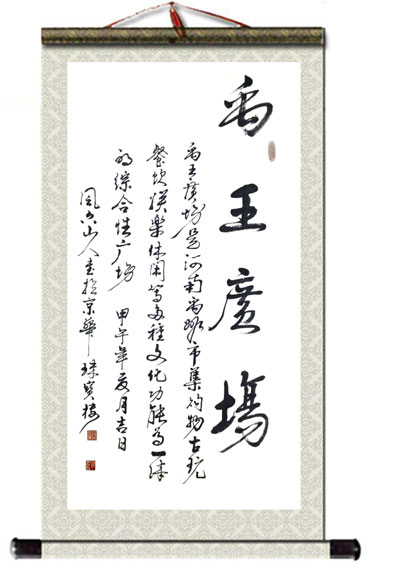 禹王廣場
禹王廣場是河南禹州市集购物古玩
餐饮娱樂休闲等多種文化功能为一体
的综合性广场 甲午年夏月吉日
山人書於京華珠寶樓